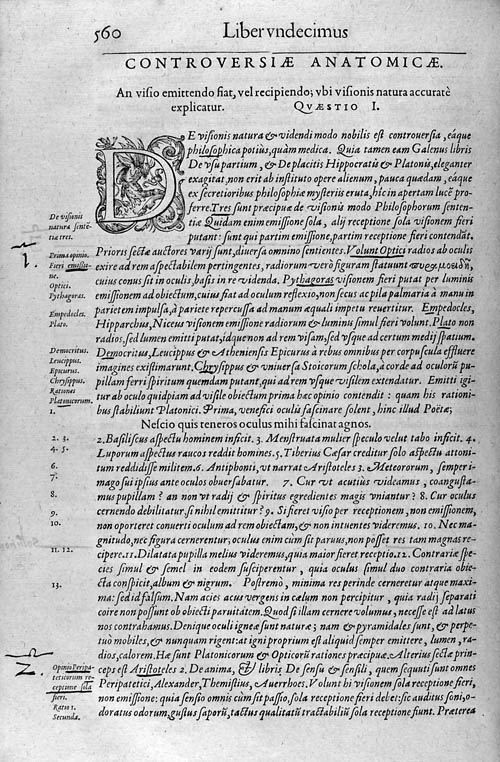 560
Liber vndecimus
CONTROVERSIÆ ANATOMICÆ.
An visio emittendo fiat, vel recipiendo; vbi visionis natura accuratè
explicatur. QVÆSTIO I.
DE visionis natura & videndi modo nobilis est controuersia, eáque
philosophica potiùs, quàm medica. Quia tamen eam Galenus libris
De vsu partium, & De placitis Hippocratis & Platonis, eleganter
exagitat, non erit ab instituto opere alienum, pauca quædam, eáque
ex secretioribus philosophiæ mysteriis eruta, hîc in apertam lucē pro-
ferre. Tres sunt præcipuæ de visionis modo Philosophorum senten-
tiæ Quidam enim emissione sola, alij receptione sola visionem fieri
putant: sunt qui partim emissione, partim receptione fieri contendāt.
Prioris sectæ auctores varij sunt, diuersa omnino sentientes. Volunt Optici radios ab oculis
exire ad rem aspectabilem pertingentes, radiorum verò figuram statuunt
cuius conus sit in oculis, basis in re videnda. Pythagoras visionem fieri putat per luminis
emissionem ad obiectum, cuius fiat ad oculum reflexio, non secus ac pila palmaria à manu in
parietem impulsa, à pariete repercussa ad manum æquali impetu reuertitur. Empedocles,
Hipparchus, Niceus visionem emissione radiorum & luminis simul fieri volunt. Plato non
radios, sed lumen emitti putat, idque non ad rem visam, sed vsque ad certum medij spatium.
Democritus, Leucippus & Atheniensis Epicurus à rebus omnibus per corpuscula effluere
imagines existimarunt. Chrysippus & vniuersa Stoicorum schola, à corde ad oculorū pu-
pillam ferri spiritum quemdam putant, qui ad rem vsque visilem extendatur. Emitti igi-
tur ab oculo quidpiam ad visile obiectum prima hæc opinio contendit: quam his rationi-
bus stabiliunt Platonici. Prima, venefici oculū fascinare solent, hinc illud Poëtæ;
Nescio quis teneros oculus mihi fascinat agnos.
2. Basiliscus aspectu hominem inficit. 3. Menstruata mulier speculo velut tabo inficit. 4.
Luporum aspectus raucos reddit homines. 5. Tiberius Cæsar creditur solo aspectu attoni-
tum reddidisse militem. 6. Antiphonti, vt narrat Aristoteles 3. Meteororum, semper i-
mago sui ipsius ante oculos obuersabatur. 7. Cur vt acutius videamus, coangusta-
mus pupillam? an non vt radij & spiritus egredientes magis vniantur? 8. Cur oculus
cernendo debilitatur, si nihil emittitur? 9. Si fieret visio per receptionem, non emissionem,
non oporteret conuerti oculum ad rem obiectam, & non intuentes videremus. 10. Nec ma-
gnitudo, nec figura cernerentur, oculus enim cùm sit paruus, non posset res tam magnas re-
cipere. 11. Dilatata pupilla melius videremus, quia maior fieret receptio. 12. Contrariæ spe-
cies simul & semel in eodem susciperentur, quia oculus simul duo contraria obie-
cta conspicit, album & nigrum. Postremò, minima res perinde cerneretur atque maxi-
ma: sed id falsum. Nam acies acus vergens in cælum non percipitur, quia radij separati
coire non possunt ob obiecti paruitatem. Quod si illam cernere volumus, necesse est ad latus
nos contrahamus. Denique oculi igneæ sunt naturæ; nam & pyramidales sunt, & perpe-
tuò mobiles, & nunquam rigent: at igni proprium est aliquid semper emittere, lumen, ra-
dios, calorem. Hæ sunt Platonicorum & Opticorū rationes præcipuæ. Alterius sectæ prin-
ceps est Aristoteles 2. De anima, & libris De sensu & sensili, quem sequuti sunt omnes
Peripatetici, Alexander, Themistius, Auerrhoes. Volunt hi visionem sola receptione fieri,
non emissione: quia sensio omnis cùm sit passio, sola receptione fieri debet: sic auditus soni, o-
doratus odorum, gustus saporū, tactus qualitatū tractabiliū sola receptione fiunt. Præterea
De visionis
natura sentē-
tiæ tres.
1.
Prima opinio.
Fieri emissio-
ne.
Optici.
Pythagoras.
Empedocles.
Plato.
Democritus.
Leucippus.
Epicurus.
Chrysippus.
Rationes
Platonicorum.
1.
2. 3.
4. 5.
6.
7.
8.
9.
10.
11. 12.
13.
2.
Opinio Peripa-
teticorum re-
ceptione sola
fieri.
Ratio 1.
Secunda.